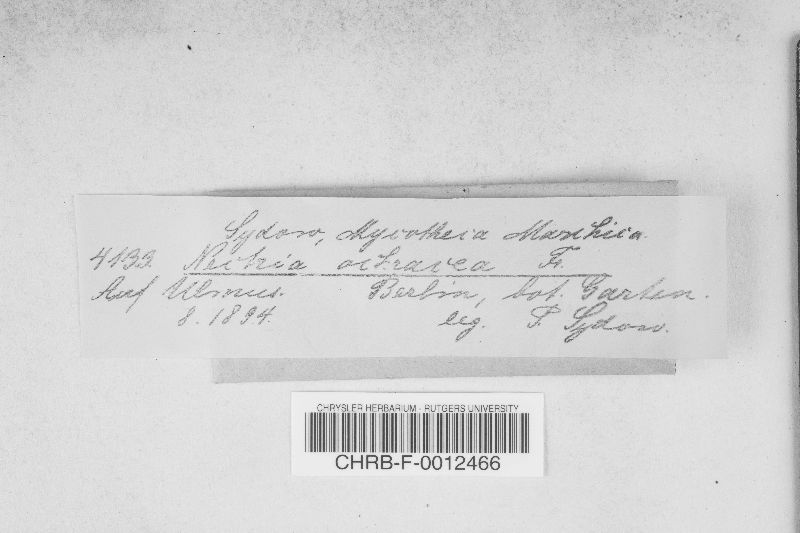 Sydow, Mycotheca Marchica.
4133. Nectria ochracea Fr.
Auf Ulmus. Berlin, bot. Garten.
8. 1894. leg. P. Sydow.
CHRYSLER HERBARIUM - RUTGERS UNIVERSITY
CHRB-F-0012466